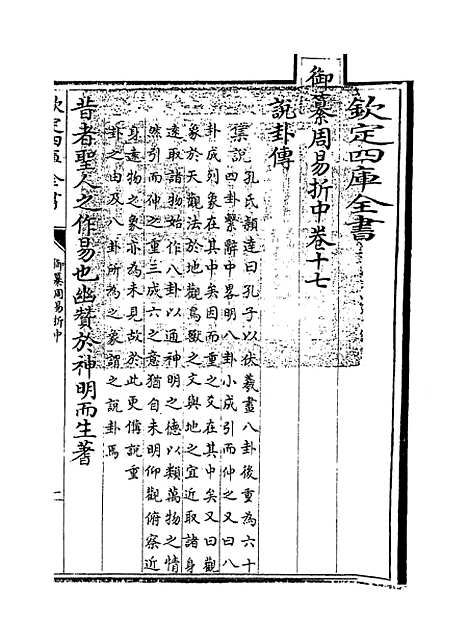 欽定四庫全書
御纂周易折中卷十七
說卦傳
集說孔氏穎達曰孔子以伏羲畫八卦後重為六十
四卦繫辭中畧明八卦小成引而伸之又曰八
卦成列象在其中矣因而重之爻在其中矣又曰觀
象於天觀法於地觀鳥獸之文與地之宜近取諸身
遠取諸物始作八卦以通神明之德以類萬物之情
然引而伸之重三成六之意猶自未明仰觀俯察近
身遠物之象亦為未見故於此更備說重
卦之由及八卦所為之象謂之說卦焉
昔者聖人之作易也幽贊於神明而生蓍
欽定四庫全書
御纂周易折中